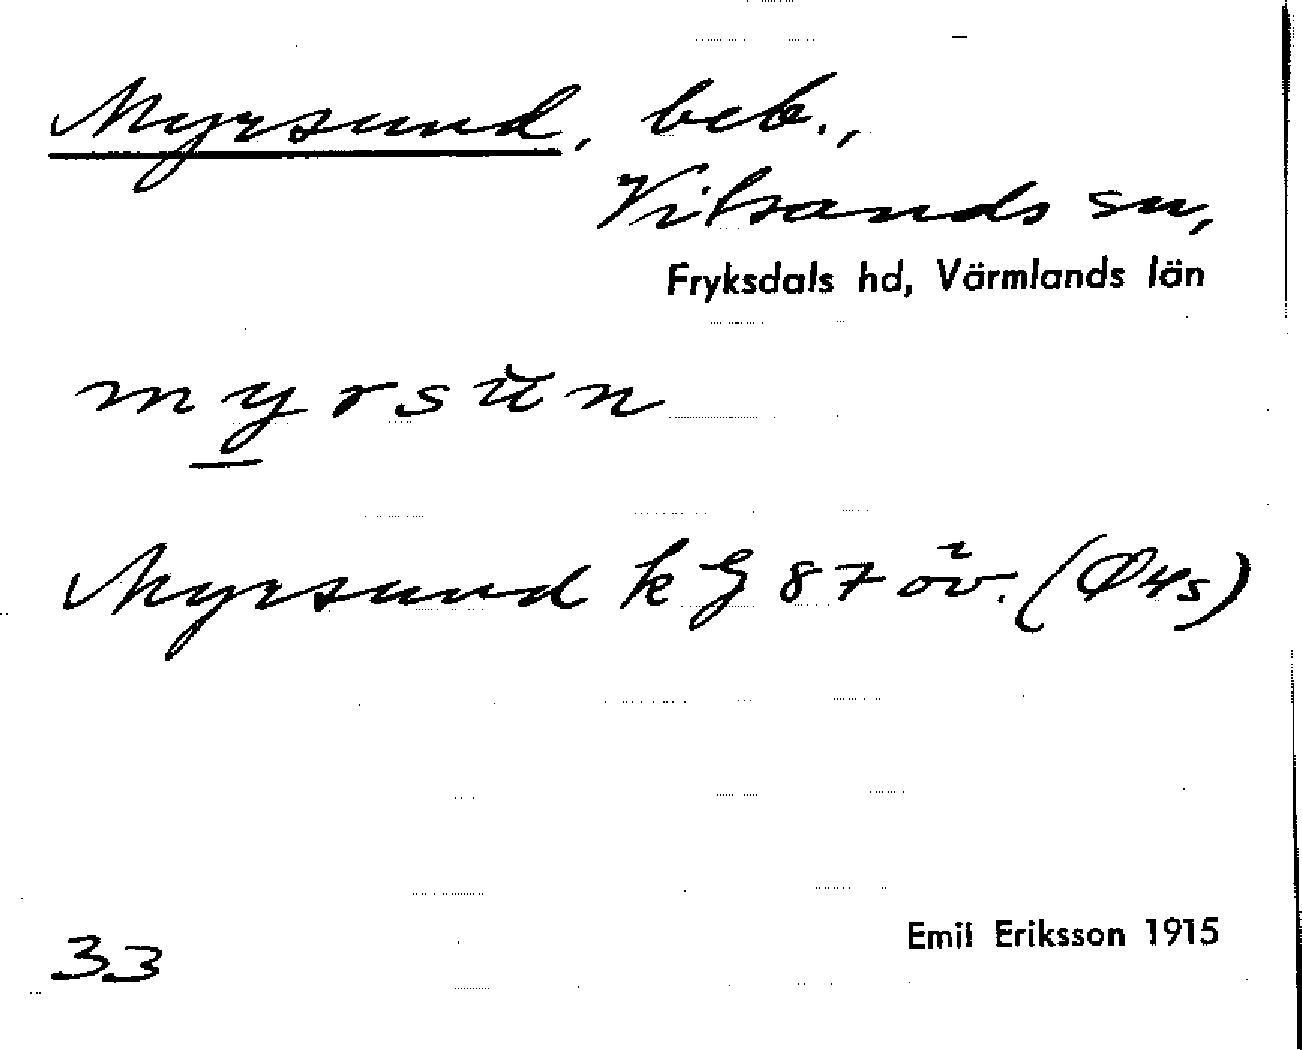 Myrsund, beb.,
Vitsands sn,
Fryksdals hd, Värmlands län
myrsŭn
Myrsund k G 87 öv. (Ö 4s)
33
Emil Eriksson 1915